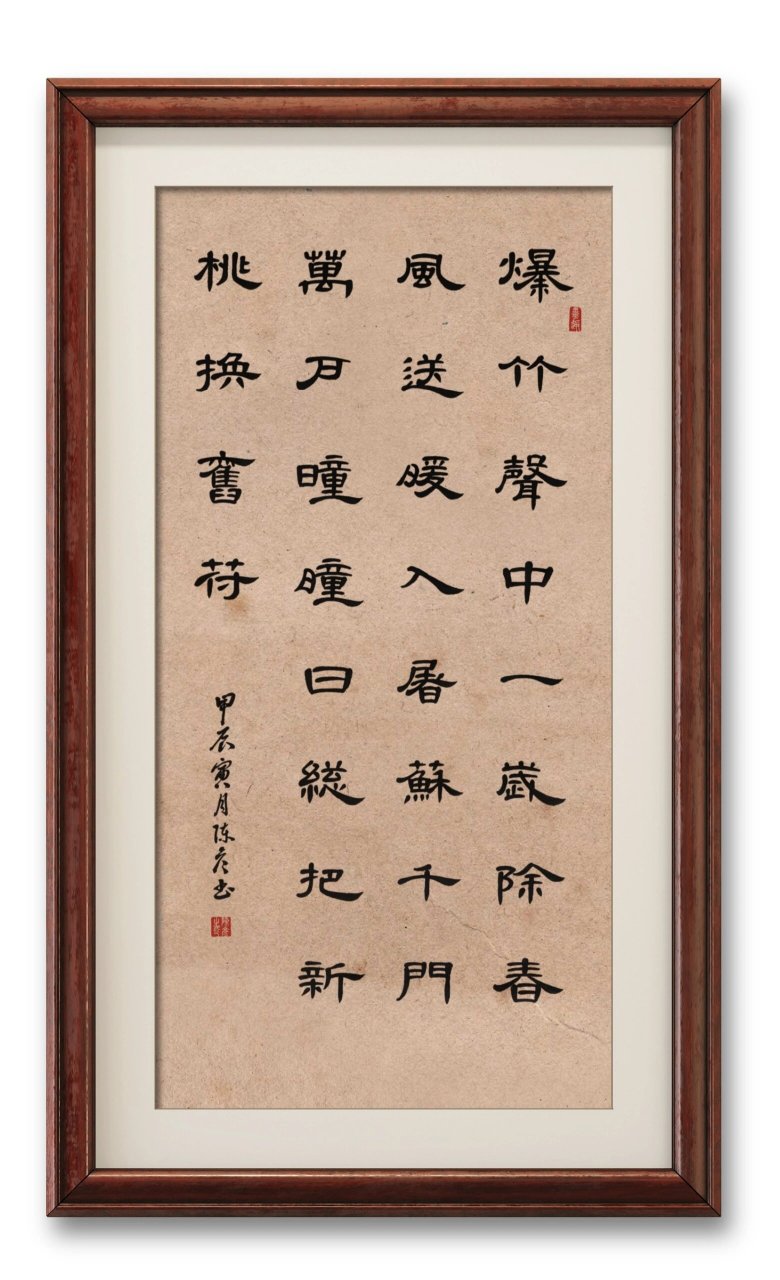 爆竹聲中一歲除春
風送暖入屠蘇千門
萬户曈曈日總把新
桃换舊符
甲辰寅月陈彦书